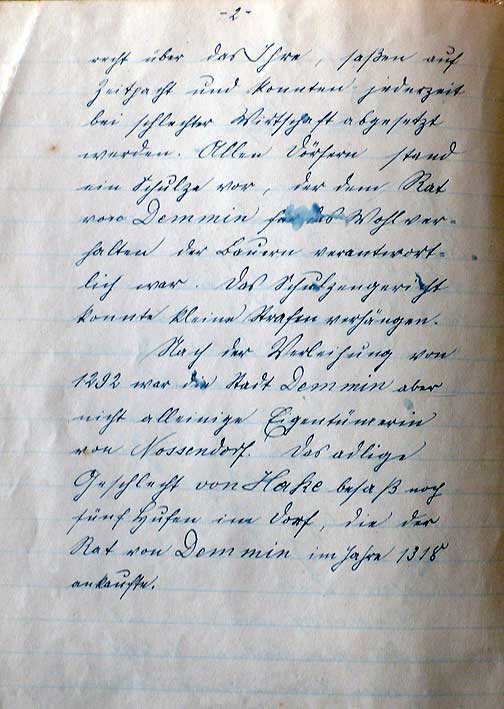 - 2 -
recht über das Ihre, saßen auf
Zeitpacht und konnten jederzeit
bei schlechter Wirtschaft abgesetzt
werden. Allen Dörfern stand
ein Schulze vor, der dem Rat
von Demmin für das Wohlver-
halten der Bauern verantwort-
lich war. Das Schulzengericht
konnte kleine Strafen verhängen.
Nach der Verleihung von
1292 war die Stadt Demmin aber
nicht alleinige Eigentümerin
von Nossendorf. Das adlige
Geschlecht von Hake besaß noch
fünf Hufen im Dorf, die der
Rat von Demmin im Jahre 1318
ankaufte.